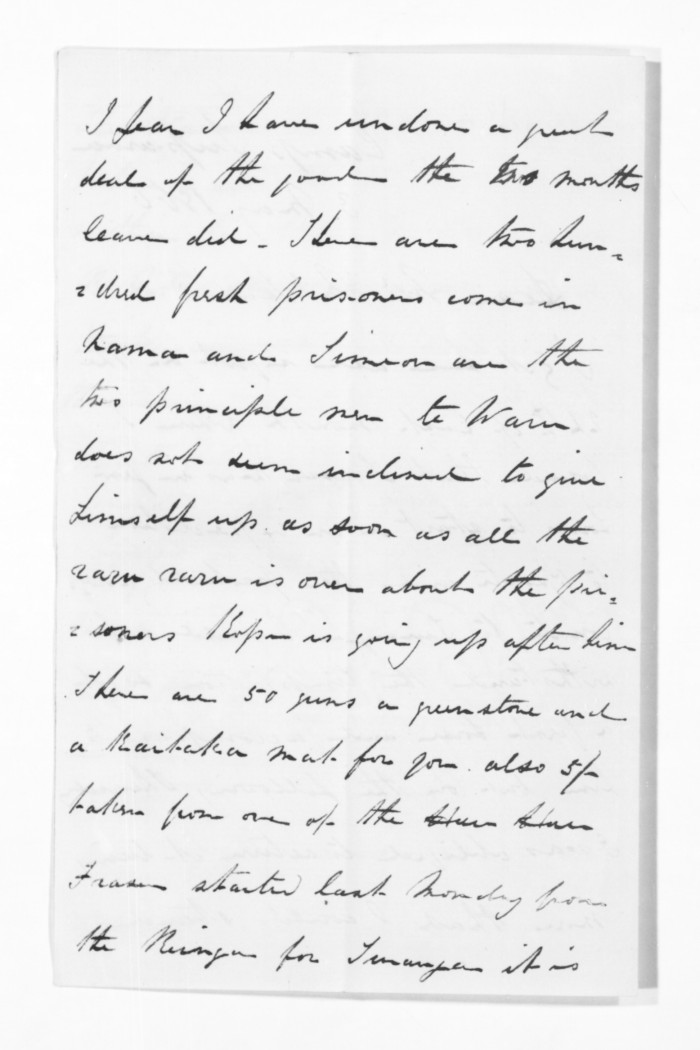 I fear I have undone a great
deal of the good the two months
leave did - There are two hun=
=dred fresh prisoners come in
Nama and Simeon are the
two principle men te Waru
does not seem inclined to give
himself up. as soon as all the
raru raru is over about the pri=
=soners Kopu is going up after him
There are 50 guns a greenstone and
a Kaitaka mat for you. also 5/-
taken from one of the Hau Hau
Fraser started last Monday from
the Reinga for Turanga it is